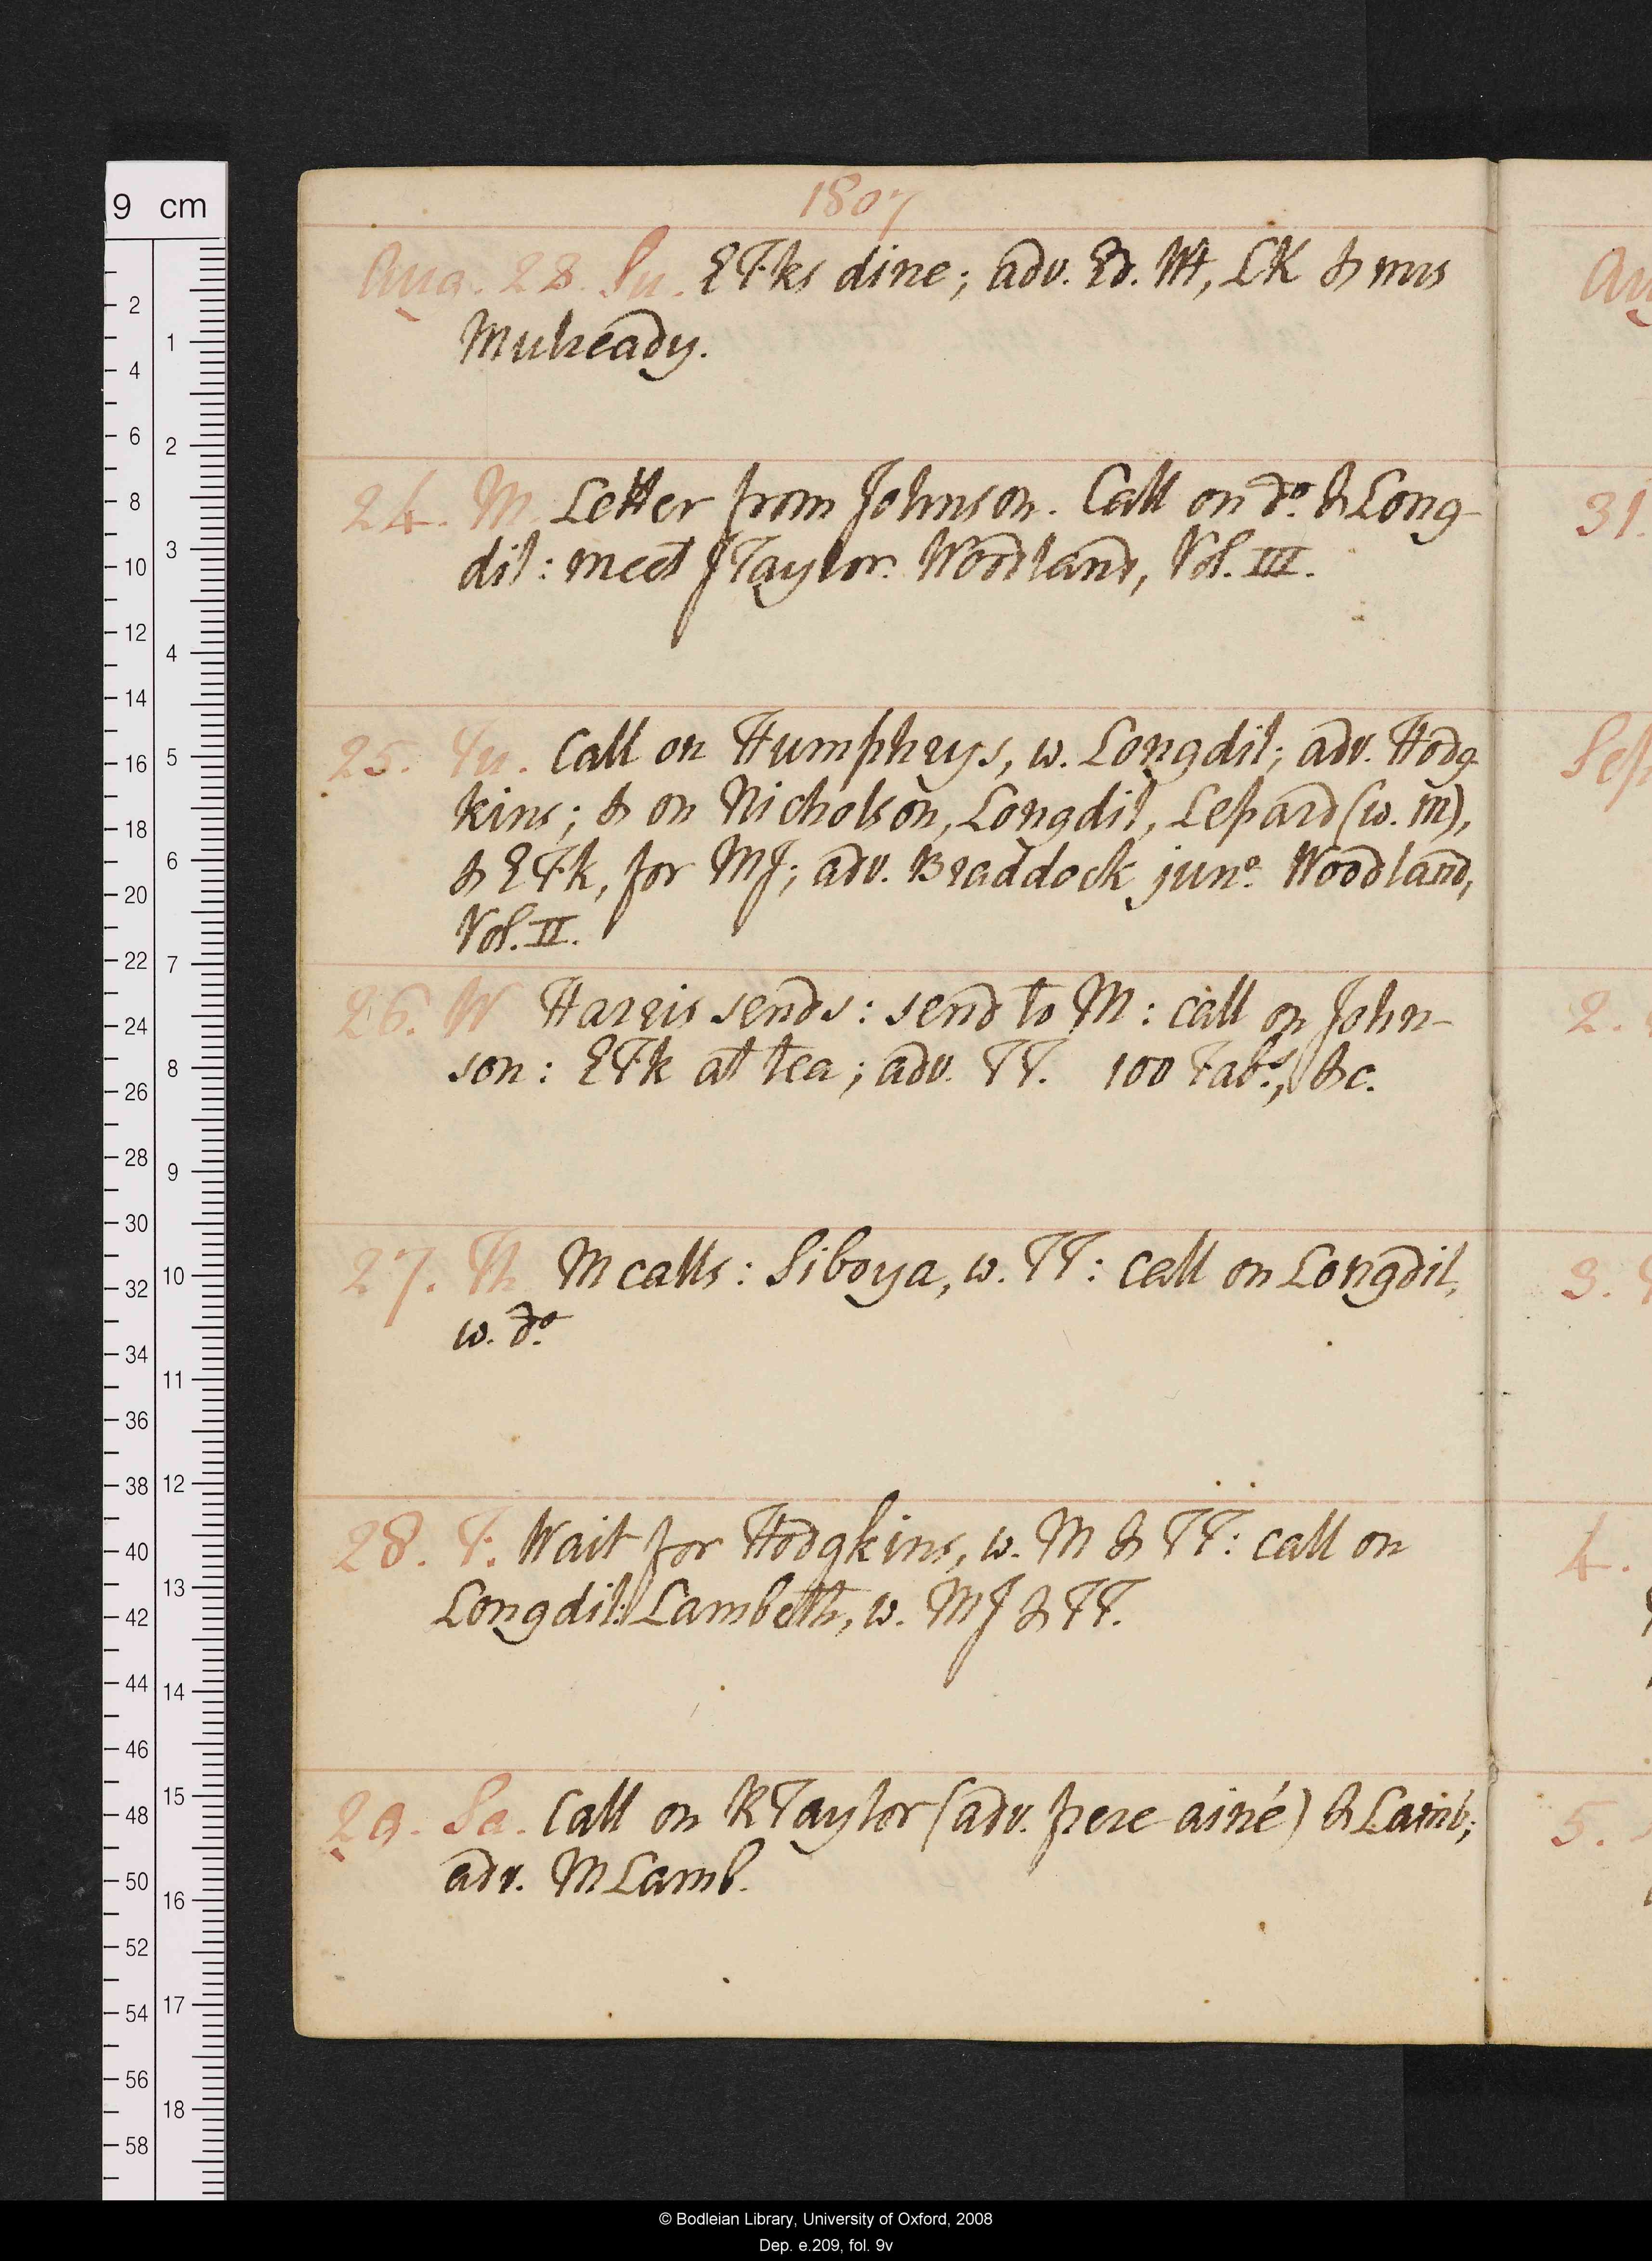 1807
Aug. 23. Su. EFks dine; adv. Ed. Wt, LK & mrs
Mulready.
24. M. Letter from Johnson. Call on do. & Long-
dil: meet JTaylor. Woodland, Vol. III.
25. Tu. Call on Humphreys, w. Longdil; adv. Hodg-
kins; & on Nicholson, Longdil, Lepard (w. m),
& EFk, for MJ; adv. Braddock junr. Woodland,
Vol. II.
26. W Harris sends: send to M: call on John-
son: EFk at tea; adv. TT. 100 Fabs., &c.
27. Th M calls: Siboya, w. TT: call on Longdil,
w. do.
28. F. Wait for Hodgkins, w. M & TT: call on
Longdil: Lambeth, w. MJ & TT.
29. Sa. Call on RTaylor (adv. frere ainé) & Lamb;
adv. MLamb.
Au
31.
Sep
2.
3.
4.
5.
9 cm
2
4
6
8
10
12
14
16
18
20
22
24
26
28
30
32
34
36
38
40
42
44
46
48
50
52
54
56
58
1
2
3
4
5
6
7
8
9
10
11
12
13
14
15
16
17
18
© Bodleian Library, University of Oxford, 2008
Dep. e.209, fol. 9v